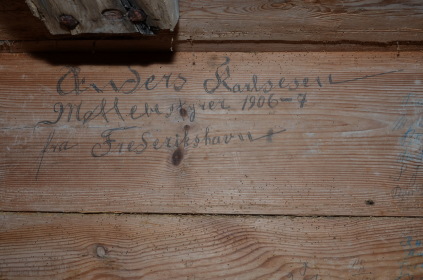 Anders Karlsesen
Møllebestyrer 1906-7
fra Frederikshavn